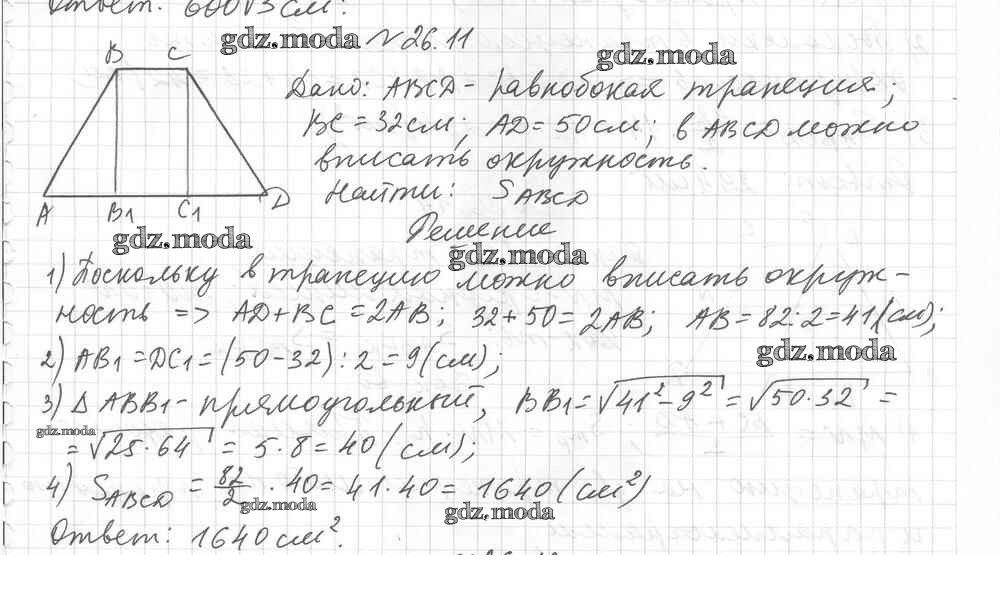 Ответ: 600√3 см².
gdz.moda №26.11
gdz.moda
B C
Дано: ABCD - равнобокая трапеция;
BC = 32см; AD = 50см; в ABCD можно
вписать окружность.
Найти: S_ABCD
A B1 C1 D
gdz.moda
Решение
gdz.moda
1) Поскольку в трапецию можно вписать окруж-
ность => AD+BC = 2AB; 32+50 = 2AB; AB = 82:2 = 41(см);
gdz.moda
2) AB1 = DC1 = (50-32) : 2 = 9(см);
3) Δ ABB1 - прямоугольный, BB1 = √41²-9² = √50·32 =
gdz.moda
= √25·64 = 5·8 = 40 (см);
4) S_ABCD = 82/2 · 40 = 41·40 = 1640 (см²)
gdz.moda
gdz.moda
Ответ: 1640 см².